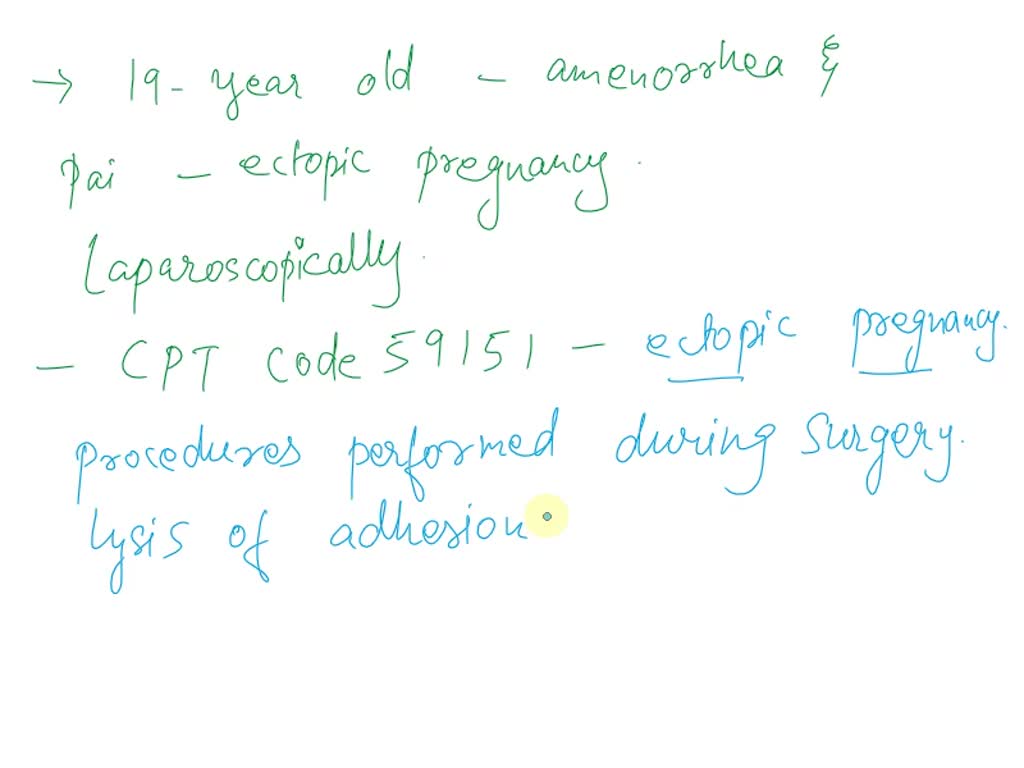 → 19-year old - amenorrhea &
pai - ectopic pregnancy.
laparoscopically.
- CPT code 59151 - ectopic pregnancy.
procedures performed during surgery.
lysis of adhesion